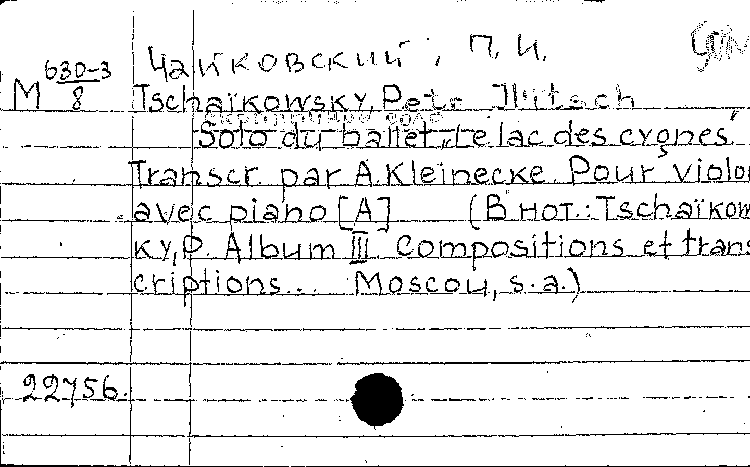 Чайковский, П. И.
М 630-3/8
Tschaïkowsky, Petr Ilitsch
Solo du ballet „Le lac des cygnes"
Transcr. par A. Kleinecke. Pour violon
avec piano [A] (В нот.: Tschaïkows
ky, P. Album III. Compositions et trans
criptions... Moscou, s. a.)
22756.